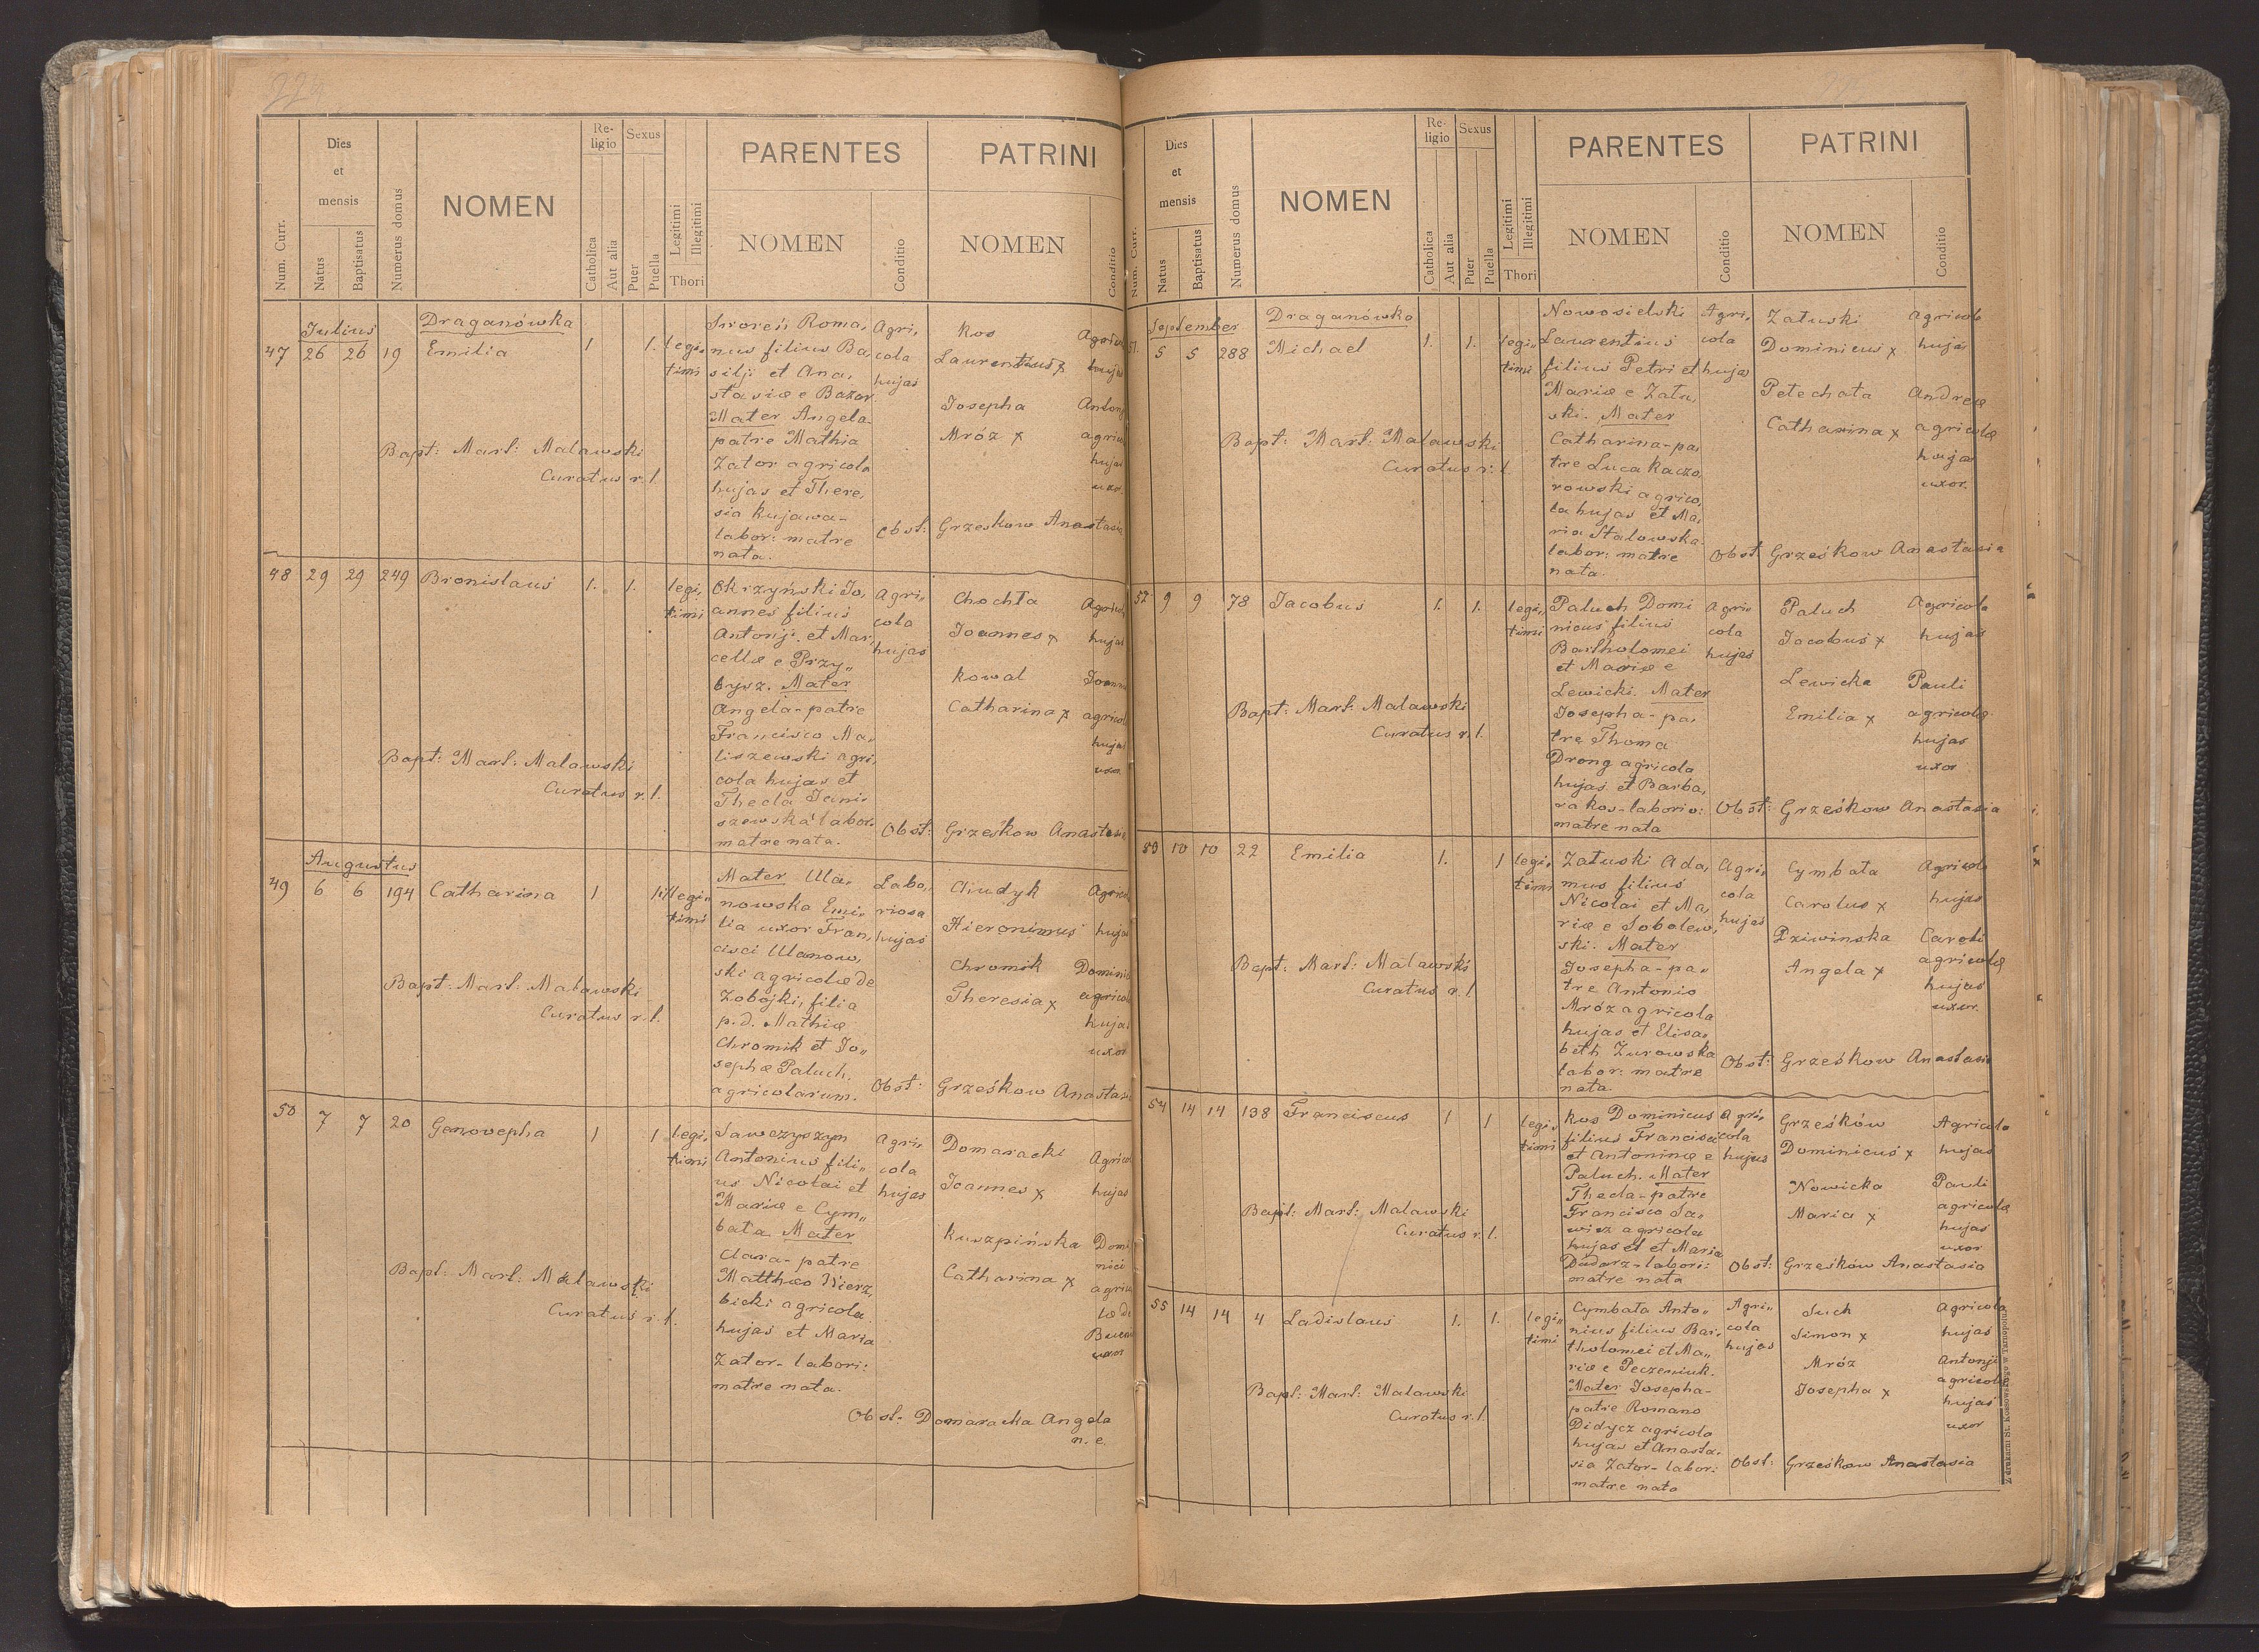 Num. Curr.
Dies et mensis
Natus
Baptisatus
Numerus domus
NOMEN
Religio
Catholica
Aut alia
Sexus
Puer
Puella
Legitimi
Illegitimi
Thori
PARENTES
NOMEN
Conditio
PATRINI
NOMEN
Conditio
Julius
Draganówka
47 26 26 19 Emilia 1 1. legi„
timi
Roma,
nus filius Ba
silji et Ana,
stasiæ e Bazar
Mater Angela-
patre Mathia
Zator agricola
hujas et There,
sia Kujawa-
labor: matre
nata.
Agri,
cola
hujas
Kos
Laurentius x
Josepha
Mróz x
agricola
hujas
uxor
Bapt: Mart: Malawski
Curatus r. l.
Obst: Grzeskow Anastasia
48 29 29 249 Bronislaus 1. 1. legi,
timi
Okrzyński Jo,
annes filius
Antonji et Mar,
cellæ e Przy„
bysz. Mater
Angela-patre
Francisco Ma„
liszewski agri,
cola hujas et
Thecla Jani„
szewska labor.
matre nata.
Agri„
cola
hujas
Chochła
Joannes x
Kowal
Catharina x
hujas
uxor
Bapt: Mart: Malawski
Curatus r. l.
Obst: Grześkow Anastasia
Augustus
49 6 6 194 Catharina 1 1 illegi„
timi
Mater Ula,
nowska Emi„
lia uxor Fran,
cisci Ulanow,
ski agricolæ de
Zabojki, filia
p.d. Mathiæ
Chromik et Jo„
sephæ Paluch.
agricolarum.
Labo,
riosa
hujas
Hieronimus
Chromik
Theresia x
hujas
uxor
Bapt: Mart: Malawski
Curatus r. l.
Obst: Grześkow Anastasia
50 7 7 20 Genovepha 1 1 legi,
timi
Sawczyszyn
Antonius fili„
us Nicolai et
Mariæ e Cym„
bała Mater
Clara-patre
Matthæo Wierz,
bicki agricola
hujas et Maria
Zator-labori:
matre nata.
Agri,
cola
hujas
Domaracki
Joannes x
Kuszpińska
Catharina x
hujas
Domi
nici
uxor
Bapt: Mart: Malawski
Curatus r. l.
Obst: Domaracka Angela
n. e.
Num. Curr.
Dies et mensis
Natus
Baptisatus
Numerus domus
NOMEN
Religio
Catholica
Aut alia
Sexus
Puer
Puella
Legitimi
Illegitimi
Thori
PARENTES
NOMEN
Conditio
PATRINI
NOMEN
Conditio
September
Draganówka
51. 5 5 288 Michael 1. 1. legi„
timi
Nowosielski
Laurentius
filius Petri et
Mariæ e Zału,
ski. Mater
Catharina-pa,
tre Luca Kaczo,
rowski agrico,
la hujas et Ma,
ria Stalowska-
labor: matre
nata.
Agri,
cola
hujas
Załuski
Dominicus x
Petechata
Catharina x
agricola
hujas
Andreæ
agricolæ
hujas
uxor.
Bapt: Mart: Malawski
Curatus r. l.
Obst Grześkow Anastasia
52 9 9 78 Jacobus 1. 1. legi,
timi
Paluch Domi
nicus filius
Bartholomei
et Mariæ e
Lewicki. Mater
Josepha-pa,
tre Thoma
Drong agricola
hujas et Barba,
ra Kos-laborio:
matre nata
Agri„
cola
hujas
Paluch
Jacobus x
Lewicka
Emilia x
Agricola
hujas
Pauli
agricolæ
hujas
uxor
Bapt: Mart: Malawski
Curatus r. l.
Obst: Grześkow Anastasia
53 10 10 22 Emilia 1. 1 legi„
timi
Załuski Ada,
mus filius
Nicolai et Ma,
riæ e Sobolew,
ski. Mater
Josepha-pa„
tre Antonio
Mróz agricola
hujas et Elisa„
beth Zurowska
labor: matre
nata.
Agri,
cola
hujas
Cymbała
Carolus x
Dziwinska
Angela x
Agricola
hujas
Caroli
agricolæ
hujas
uxor.
Bapt: Mart: Malawski
Curatus r. l.
Obst: Grześkow Anastasia
54 14 14 138 Franciscus 1 1 legi„
timi
Kos Dominicus
filius Francisci
et Antoninæ e
Paluch. Mater
Thecla-patre
Francisco Sa,
wicz agricola
hujas et et Maria
Dudarz-labori:
matre nata
Agri,
cola
hujas
Grześków
Dominicus x
Nowicka
Maria x
Agricola
hujas
Pauli
agricolæ
hujas
uxor
Bapt: Mart: Malawski
Curatus r. l.
Obst: Grześków Anastasia
55 14 14 4 Ladislaus 1. 1. legi„
timi
Cymbała Anto„
nius filius Bar,
tholomei et Ma„
riæ e Peczeniuk.
Mater Josepha-
patre Romano
Didycz agricola
hujas et Anasta,
sia Zator-labor:
matre nata
Agri„
cola
hujas
Such
Simon x
Mróz
Josepha x
Agricola
hujas
Antonji
agricolæ
hujas
uxor
Bapt: Mart: Malawski
Curatus r. l.
Obst: Grześkow Anastasia
Z drukarni St. Kossowskiego w Tarnopolu